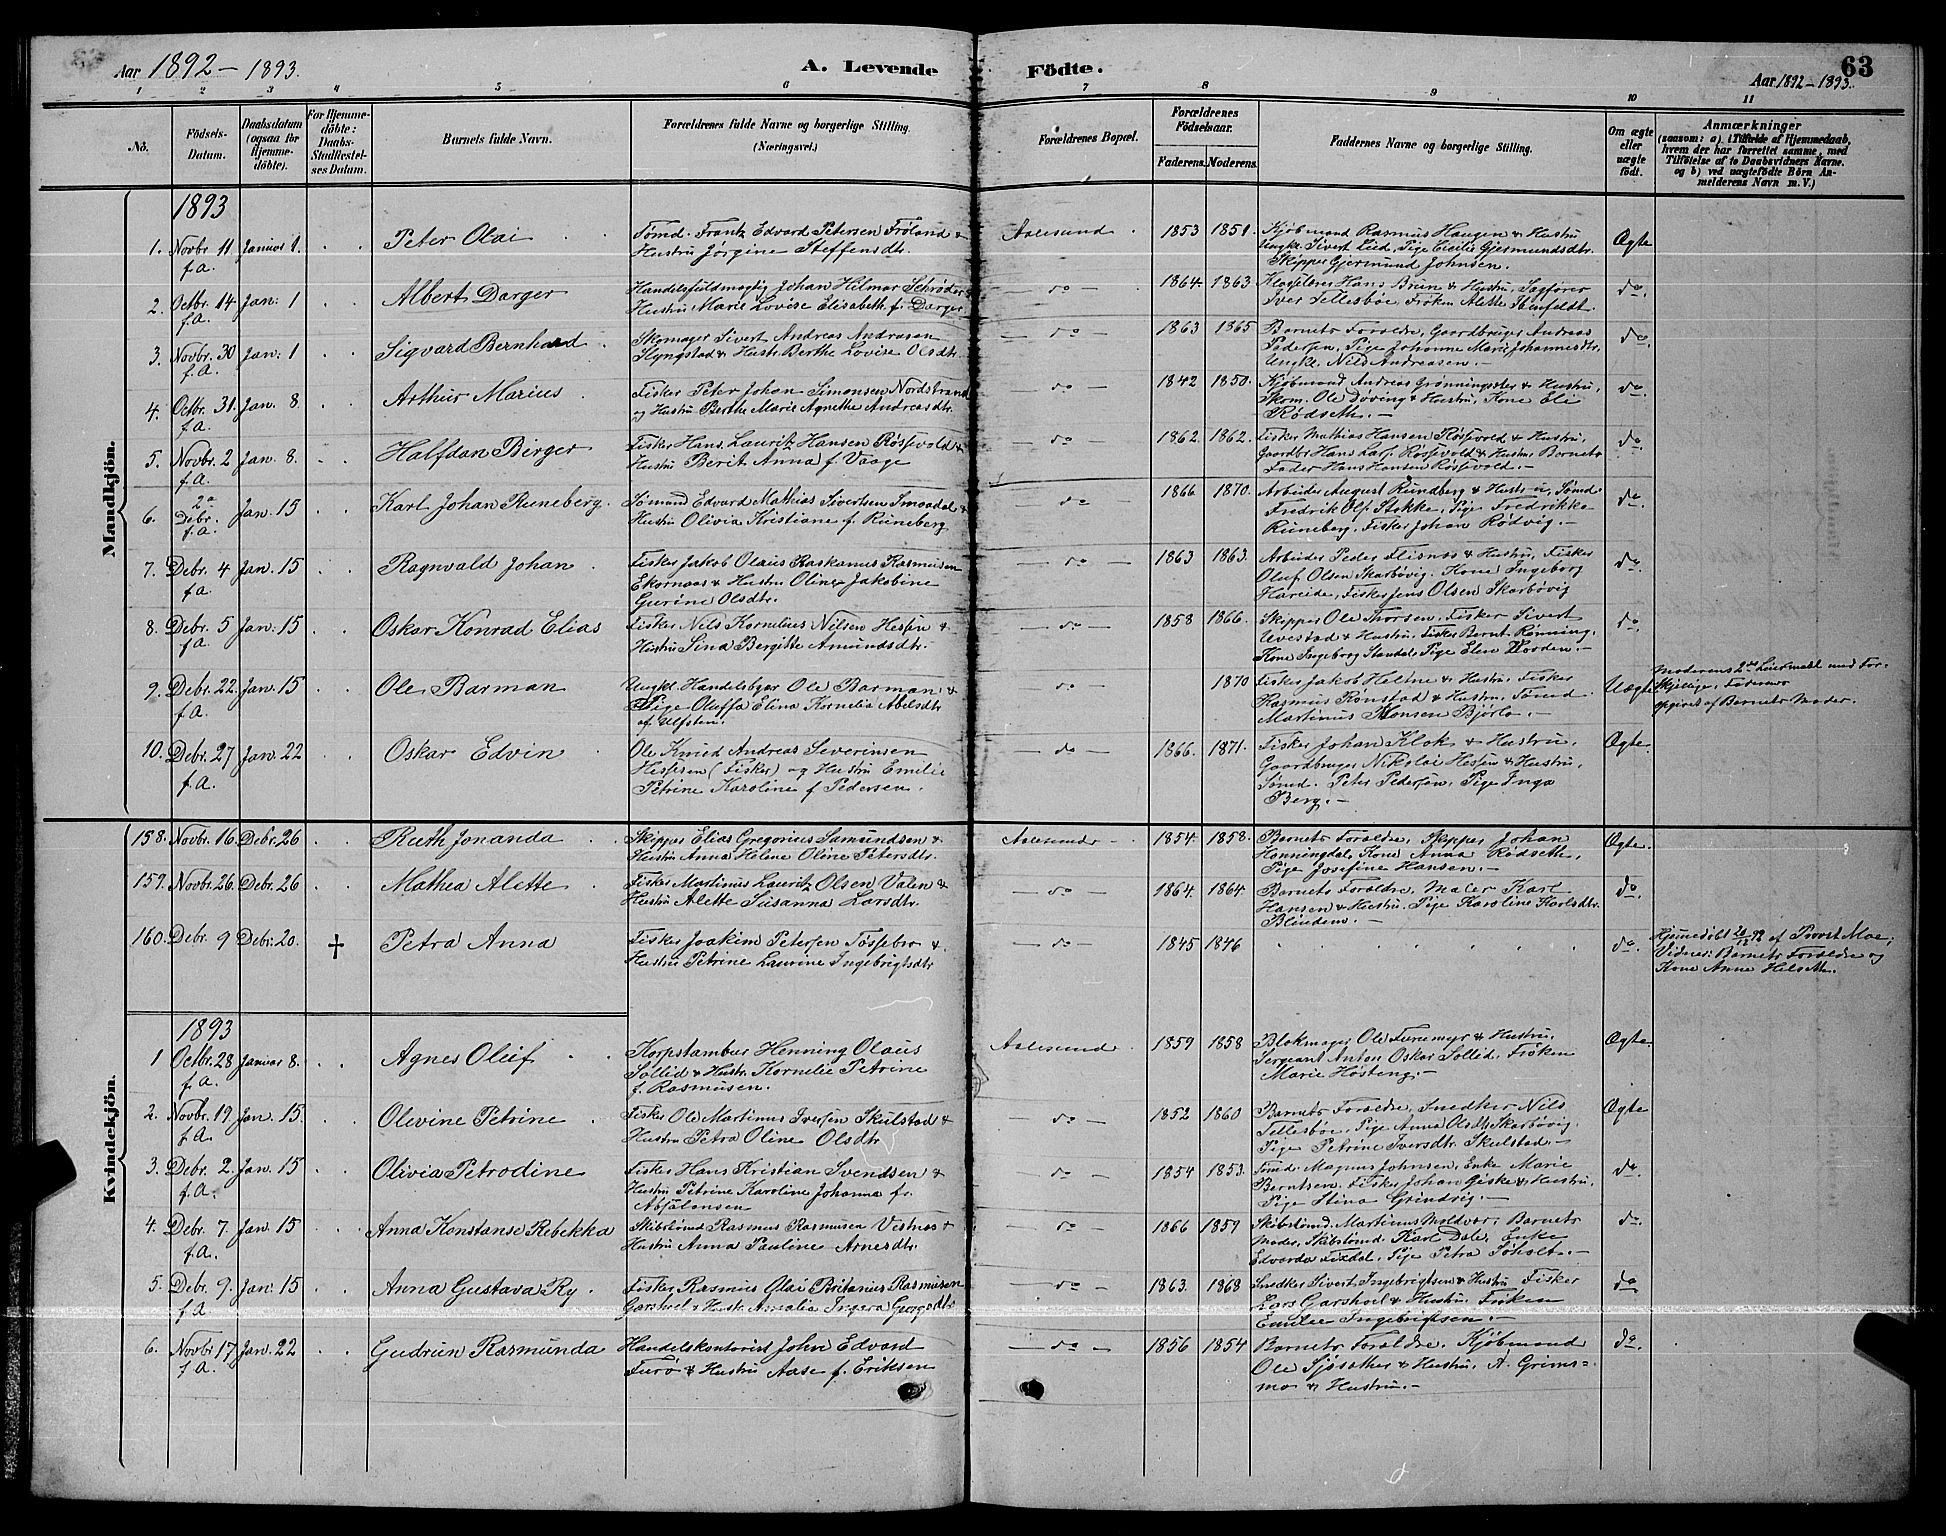 Aar 1892 – 1893.
A. Levende Födte.
63
Aar 1892 – 1893.
1 2 3 4 5 6 7 8 9 10 11
No.
Födsels-Datum.
Daabsdatum (ogsaa för Hjemme-döbte).
For Hjemme-döbte: Daabs-Stadfæstel-ses Datum.
Barnets fulde Navn.
Forældrenes fulde Navne og borgerlige Stilling. (Næringsvei.)
Forældrenes Bopæl.
Forældrenes Födselsaar.
Faderens. Moderens.
Faddernes Navne og borgerlige Stilling.
Om ægte eller uægte födt.
Anmærkninger
(saasom: a) i Tilfælde af Hjemmedaab, hvem der har forrettet samme, med Tilföielse af to Daabsvidners Navne. og b) ved uægtefödte Börn Anmelderens Navn m. V.)
Mandkjön.
1893
1. Novbr. 11 f.A. Januar 1. Peter Olai Tømd. Frantz Edvard Petersen Frøland & Hustru Jørgine Steffensdtr. Aalesund 1853 1851. Kjøbmand Rasmus Haugen & Hustru Ungkr. Sivert Lied, Pige Cecilie Gjermundsdtr. Skipper Gjermund Johnsen. Ægte
2. Octbr. 14 f.A. Jan: 1 Albert Darger Handelsfuldmægtig Johan Hilmar Schrøder & Hustru Marie Lovise Elisabeth f. Darger do 1864. 1863 Hans Bruun & Hustru, Sagfører Iver Tellesbøe, Frøken Alette do.
3. Novbr. 30 f.A. Jan: 1 Sigvard Bernhard Skomager Sivert Andreas Andreasen Flyngstad & Hustr. Berthe Lovise Olsdtr. do 1863 1865 Barnets Forældre, Gaardbruger Andreas Pedersen, Pige Johanne Marie Johannesdtr, Ungkr. Nils Andreasen. do.
4. Octbr. 31. f.A. Jan. 8. Arthur Marius Fisker Peter Johan Simonsen Nordstrand og Hustru Berthe Marie Agnethe Andreasdtr. do 1842 1850. Kjøbmand Andreas Grønningsæter & Hustru, Skom. Ole Døving & Hustru, Kone Eli Rødseth. do
5. Novbr. 2 f.A. Jan. 8. Halfdan Birger Fisker Hans Lauritz Hansen Røssevold & Hustru Berit Anna f. Vaage do 1862. 1862. Fisker Mathias Hansen Røssevold & Hustru, Gaardbr Hans Lars. Røssevold & Hustru. Barnets Fader Hans Hansen Røssevold. do
6. 2n Debr. f.A. Jan. 15 Karl Johan Runeberg. Sømand Edvard Mathias Sivertsen Smaadal & Hustru Olivia Kristiane f. Runeberg do 1866 1870. Arbeider August Rundberg & Hustru, Sømd. Fredrik Ols. Stokke, Pige Fredrikke Runeberg, Fisker Johan Rødvig. do
7. Debr. 4 f.A. Jan. 15 Ragnvald Johan Fisker Jakob Olaus Raskanus Rasmusen Ekornaas & Hustru Oline Jakobine Gurine Olsdtr. do 1863 1863. Arbeider Peder Flisnes & Hustru, Fisker Oluf Olsen Skarbøvig. Kone Ingeborg Hareide, Fisker Jens Olsen Skarbøvig do.
8. Debr. 5 f.A. Jan: 15 Oskar Konrad Elias Fisker Nils Kornelius Nilsen Hessen & Hustru Sina Bergitte Amundsdtr. do 1858 1866. Skipper Ole Thorsen, Fisker Sivert Urestad & Hustru, Fisker Bernt Rønning, Kone Ingeborg Standal, Pige Elen Hovden. do
9. Debr. 22 f.A. Jan. 15 Ole Barman Ungkr. Handelsbgar Ole Barman & Pige Oluffa Elina Kornelia Abelsdtr af Ulfsten. do 1870 Fisker Jakob Heltne & Hustru, Fisker Rasmus Rønstad & Hustru, Sømd Martinus Monsen Bjørlo. Uægte Moderens 2det Leiermaal med Forskjellige, Faderen opgivet af Barnets Moder.
10. Debr. 27 f.A. Jan. 22 Oskar Edvin Ole Knud Andreas Severinsen Hessen (Fisker) og Hustru Emilie Petrine Karoline f Pedersen. do 1866. 1871. Fisker Johan Klok & Hustru. Gaardbruger Nikolai Hessen & Hustru, Sømd. Peter Pedersen, Pige Inga Berg. Ægte.
Kvindekjön.
158. Novbr. 16. Debr. 26 Ruth Jonanda Skipper Elias Gregorius Samundsen & Hustru Anna Helene Oline Petersdtr. Aalesund 1854. 1858. Barnets Forældre, Skipper Johan Honningdal, Kone Anna Rødseth, Pige Josefine Hansen. Ægte.
159. Novbr. 26. Debr. 26 Mathea Alette Fisker Martinus Lauritz Olsen Valen & Hustru Alette Susanna Larsdtr. do 1864. 1864. Barnets Forældre, Maler Karl Hansen & Hustru. Pige Karoline Karlsdtr. Blindem. do.
160. Debr. 9 Debr. 20. † Petra Anna Fisker Joakim Petersen Tossebro & Hustru Petrine Laurine Ingebrigtsdtr do 1845 1846 do. Hjemmedøbt 20/12 92 af Provst Moe; Vidner: Barnets Forældre og Kone Anne Helseth.
1893
1 Octbr. 28 f.A. Januar 8. Agnes Oluf Korpstambur Henning Olaus Sollid & Hustr. Kornelie Petrine f. Rasmusen. Aalesund 1859 1858 Blokmager Ole Furemyr & Hustru. Sergeant Anton Oskar Sollid. Frøken Marie Høsteng. Ægte
2. Novbr. 19 f.A. Jan. 15. Olevine Petrine Fisker Ole Martinus Iversen Skulstad & Hustru Petra Oline Olsdtr do 1852 1860 Barnets Forældre, Snedker Nils Tellesbøe, Pige Anna Olsdtr Skarbøvig. Pige Petrine Iversdtr. Skulstad. Ægte
3. Debr. 2. f.A. Jan. 15 Olivia Petrodine Fisker Hans Kristian Svendsen & Hustru Petrine Karoline Johanna f. Absalonsen do 1854 1853. Tømd. Magnus Johnsen, Enke Marie Berntsen. Fisker Johan Giske & Hustru, Pige Stina Grindvig. do
4. Debr. 7. f.A. Jan. 15 Anna Konstanse Rebekka Skibstømd Rasmus Rasmusen Vestnes & Hustru Anna Pauline Arnesdtr. do 1866 1859 Skibstømd. Martinus Moldvær, Barnets Moder, Skibstømd Karl Dale. Enke Edvarda Fixdal, Pige Petra Søholt. do
5. Debr. 9. f.A Jan: 15 Anna Gustava Ry. Fisker Rasmus Olai Britanius Rasmusen Garshol & Hustr. Amalia Ingera Georgsdtr do 1863. 1868 Snedker Sivert Ingebrigtsen & Hustru Fisker Lars Garshol & Hustru. Frøken Emilie Ingebrigtsen. do
6. Novbr 17 f.A. Jan. 22 Gudrun Rasmunda Handelskontorist John Edvard Furø & Hustru Aase f. Eriksen do 1856 1854 Barnets Forældre. Kjøbmand Ole Sjøsæther & Hustru, A. Grimsmo & Hustru. do